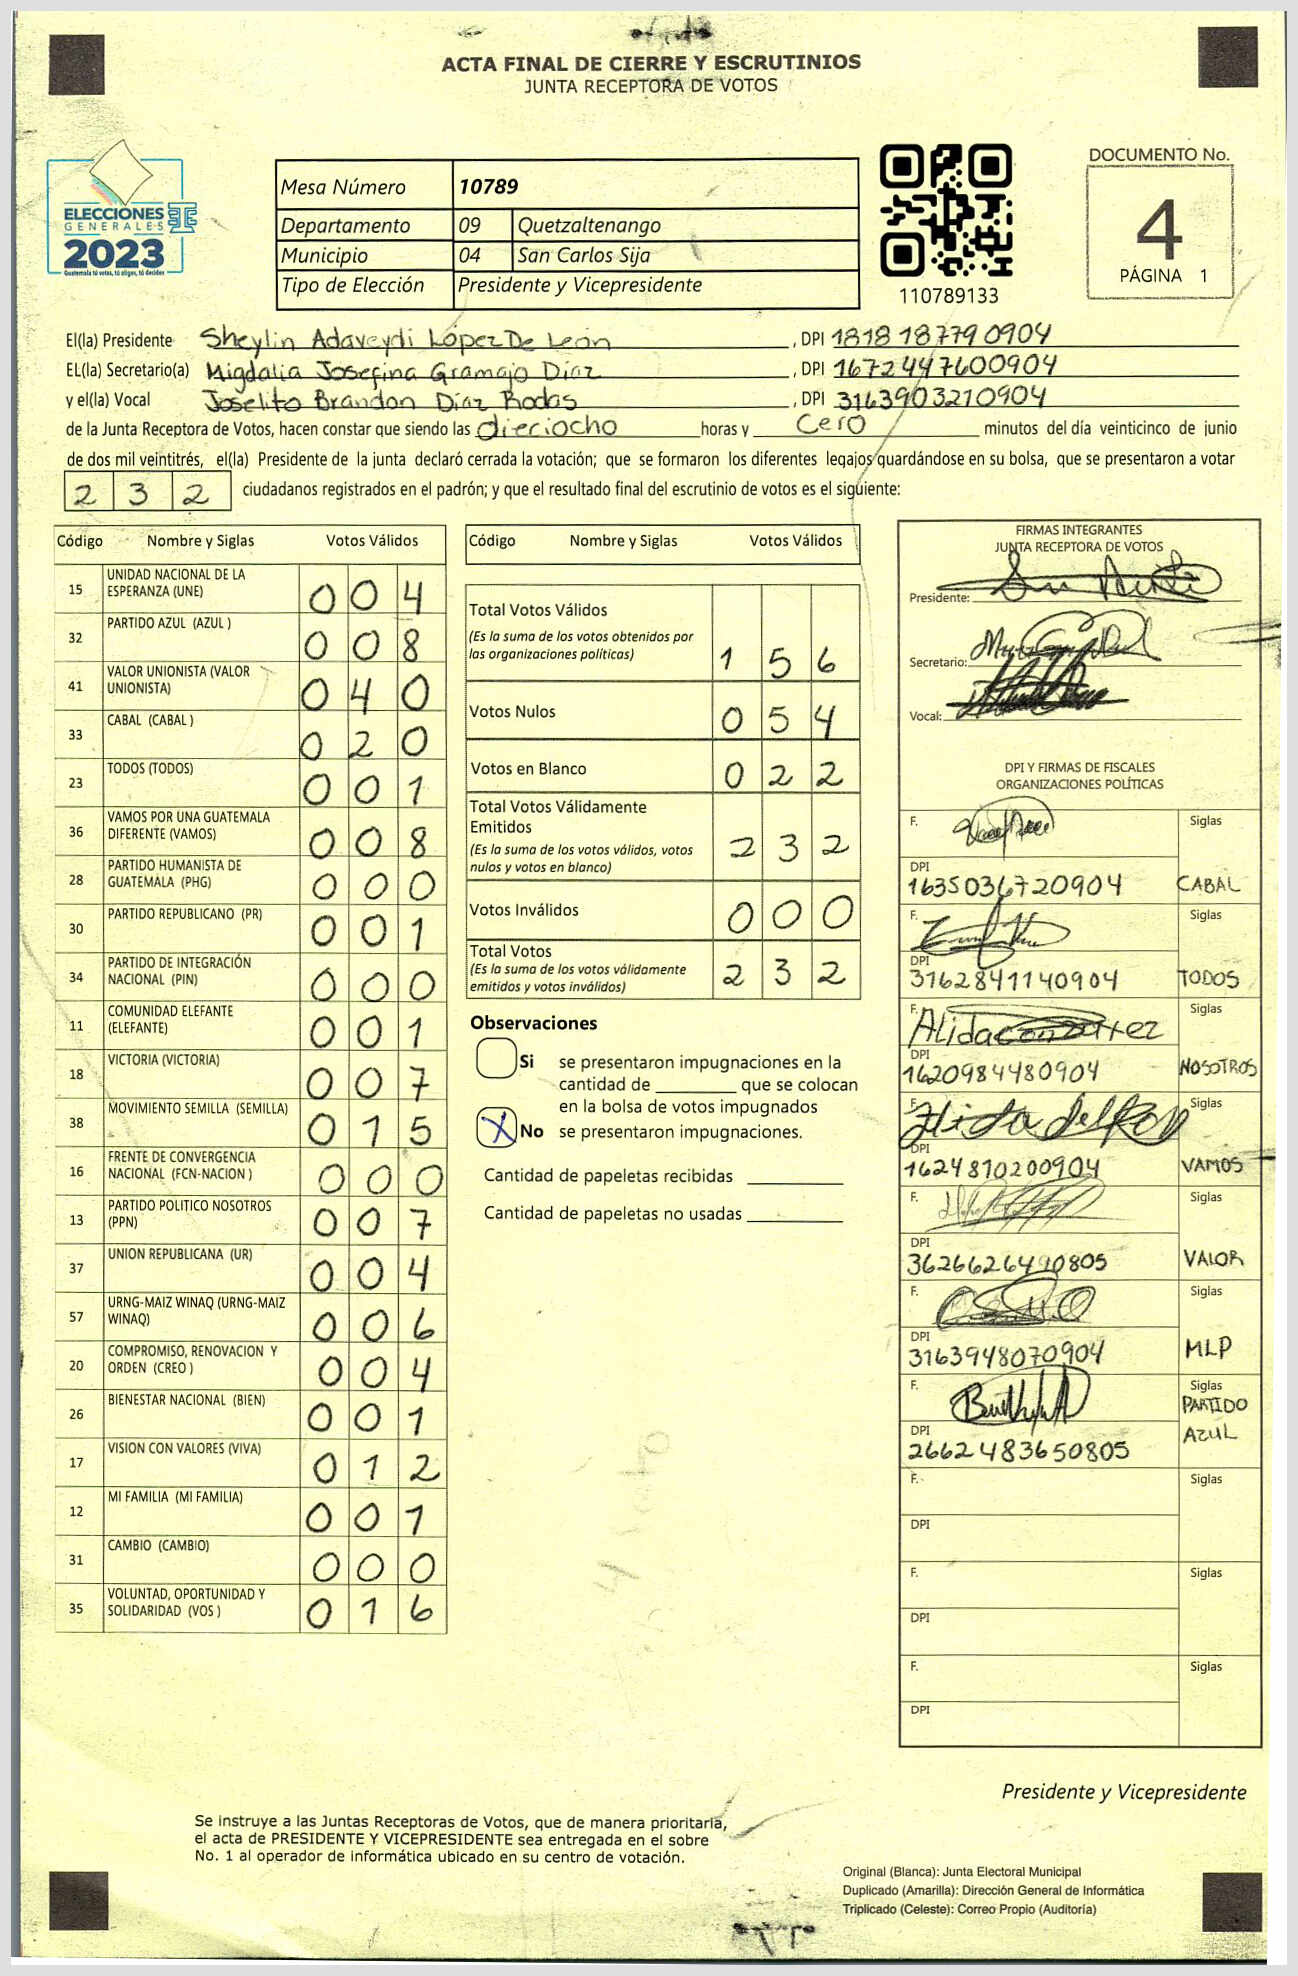 ACTA FINAL DE CIERRE Y ESCRUTINIOS
JUNTA RECEPTORA DE VOTOS
ELECCIONES
GENERALES
2023
Guatemala tú votas, tú eliges, tú decides
Mesa Número 10789
Departamento 09 Quetzaltenango
Municipio 04 San Carlos Sija
Tipo de Elección Presidente y Vicepresidente
110789133
DOCUMENTO No.
4
PÁGINA 1
El(la) Presidente Sheylin Adaveydi López De León, DPI 1818187790904
EL(la) Secretario(a) Migdalia Josefina Gramajo Díaz, DPI 1672447600904
y el(la) Vocal Joselito Brandon Díaz Rodas, DPI 3163903210904
de la Junta Receptora de Votos, hacen constar que siendo las dieciocho horas y Cero minutos del día veinticinco de junio
de dos mil veintitrés, el(la) Presidente de la junta declaró cerrada la votación; que se formaron los diferentes legajos guardándose en su bolsa, que se presentaron a votar
232 ciudadanos registrados en el padrón; y que el resultado final del escrutinio de votos es el siguiente:
Código Nombre y Siglas Votos Válidos
15 UNIDAD NACIONAL DE LA
ESPERANZA (UNE) 004
32 PARTIDO AZUL (AZUL ) 008
41 VALOR UNIONISTA (VALOR
UNIONISTA) 040
33 CABAL (CABAL ) 020
23 TODOS (TODOS) 001
36 VAMOS POR UNA GUATEMALA
DIFERENTE (VAMOS) 008
28 PARTIDO HUMANISTA DE
GUATEMALA (PHG) 000
30 PARTIDO REPUBLICANO (PR) 001
34 PARTIDO DE INTEGRACIÓN
NACIONAL (PIN) 000
11 COMUNIDAD ELEFANTE
(ELEFANTE) 001
18 VICTORIA (VICTORIA) 007
38 MOVIMIENTO SEMILLA (SEMILLA) 015
16 FRENTE DE CONVERGENCIA
NACIONAL (FCN-NACION ) 000
13 PARTIDO POLITICO NOSOTROS
(PPN) 007
37 UNION REPUBLICANA (UR) 004
57 URNG-MAIZ WINAQ (URNG-MAIZ
WINAQ) 006
20 COMPROMISO, RENOVACION Y
ORDEN (CREO ) 004
26 BIENESTAR NACIONAL (BIEN) 001
17 VISION CON VALORES (VIVA) 012
12 MI FAMILIA (MI FAMILIA) 001
31 CAMBIO (CAMBIO) 000
35 VOLUNTAD, OPORTUNIDAD Y
SOLIDARIDAD (VOS ) 016
Código Nombre y Siglas Votos Válidos
Total Votos Válidos
(Es la suma de los votos obtenidos por
las organizaciones políticas) 156
Votos Nulos 054
Votos en Blanco 022
Total Votos Válidamente
Emitidos
(Es la suma de los votos válidos, votos
nulos y votos en blanco) 232
Votos Inválidos 000
Total Votos
(Es la suma de los votos válidamente
emitidos y votos inválidos) 232
Observaciones
Si se presentaron impugnaciones en la
cantidad de ________ que se colocan
en la bolsa de votos impugnados
X No se presentaron impugnaciones.
Cantidad de papeletas recibidas
Cantidad de papeletas no usadas
FIRMAS INTEGRANTES
JUNTA RECEPTORA DE VOTOS
Presidente:
Secretario:
Vocal:
DPI Y FIRMAS DE FISCALES
ORGANIZACIONES POLÍTICAS
F. Siglas
DPI
1635036720904 CABAL
F. Siglas
DPI
3162841140904 TODOS
F. Alida Siglas
DPI
1620984480904 NOSOTROS
F. Siglas
DPI
1624810200904 VAMOS
F. Siglas
DPI
3626626490805 VALOR
F. Siglas
DPI
3163948070904 MLP
F. Siglas
PARTIDO
DPI AZUL
2662483650805
F. Siglas
DPI
F. Siglas
DPI
F. Siglas
DPI
Presidente y Vicepresidente
Se instruye a las Juntas Receptoras de Votos, que de manera prioritaria,
el acta de PRESIDENTE Y VICEPRESIDENTE sea entregada en el sobre
No. 1 al operador de informática ubicado en su centro de votación.
Original (Blanca): Junta Electoral Municipal
Duplicado (Amarilla): Dirección General de Informática
Triplicado (Celeste): Correo Propio (Auditoría)